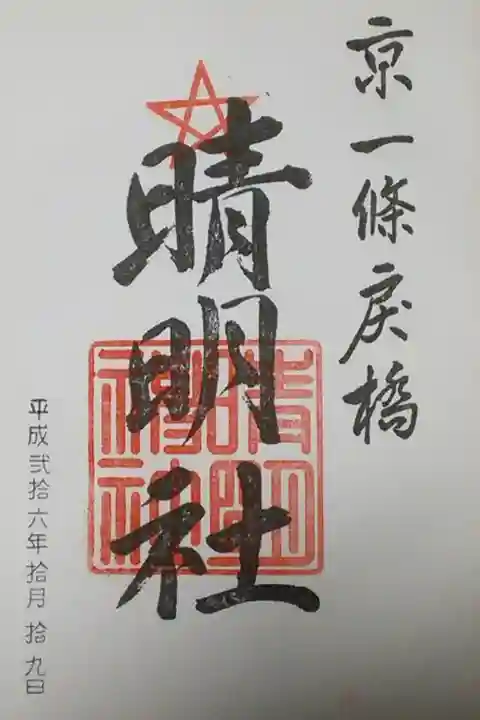 京一條戻橋
晴明社
晴明神社
平成弐拾六年拾月拾九日